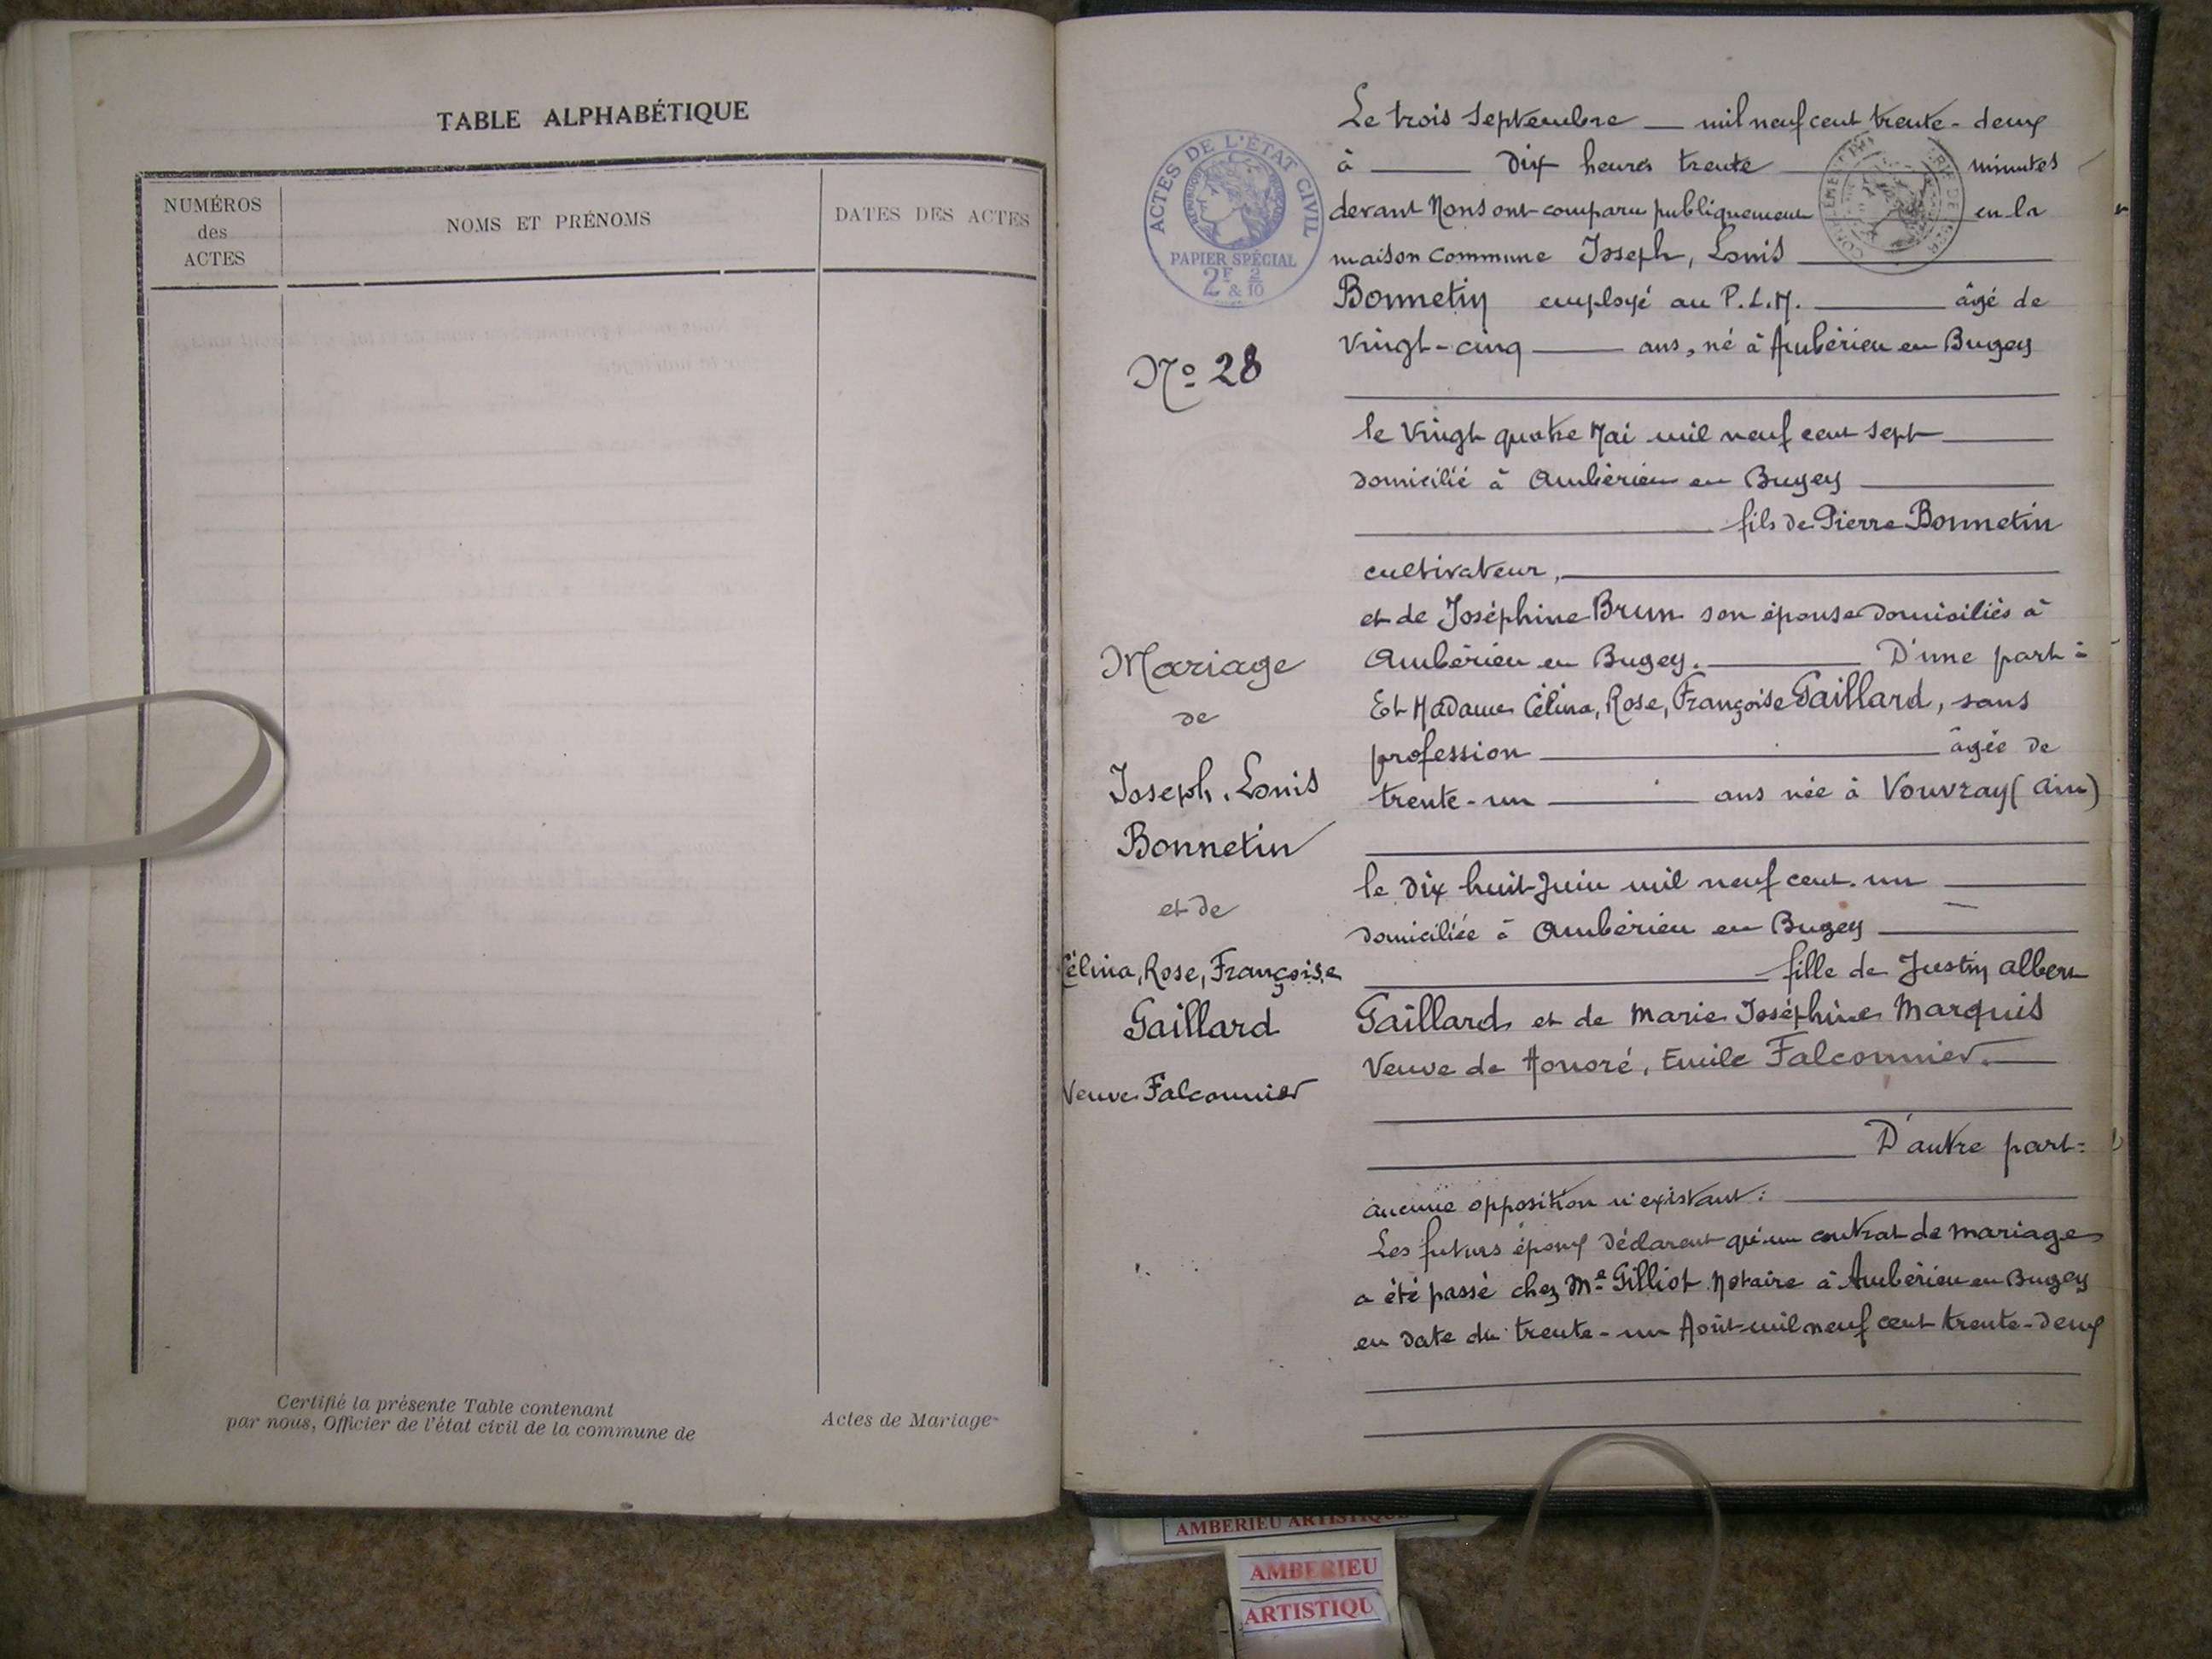 TABLE ALPHABÉTIQUE
NUMÉROS
des
ACTES
NOMS ET PRÉNOMS
DATES DES ACTES
Certifié la présente Table contenant
par nous, Officier de l'état civil de la commune de
Actes de Mariage
ACTES DE L'ÉTAT CIVIL
PAPIER SPÉCIAL
2F & 2/10
Nº 28
Mariage
de
Joseph, Louis
Bonnetin
et de
Célina, Rose, Françoise
Gaillard
Veuve Falconnier
Le trois Septembre — mil neuf cent trente-deux
à — Dix heures trente — minutes
devant Nous ont comparu publiquement en la
maison commune Joseph, Louis
Bonnetin employé au P.L.M. — âgé de
vingt-cinq — ans, né à Ambérieu en Bugey
le vingt quatre Mai mil neuf cent sept
domicilié à Ambérieu en Bugey
fils de Pierre Bonnetin
cultivateur,
et de Joséphine Brun son épouse domiciliés à
Ambérieu en Bugey. — D'une part =
Et Madame Célina, Rose, Françoise Gaillard, sans
profession — âgée de
trente-un — ans née à Vouvray (Ain)
le dix huit Juin mil neuf cent un
domiciliée à Ambérieu en Bugey
fille de Justin Albert
Gaillard et de Marie Joséphine Marquis
Veuve de Honoré, Emile Falconnier.
D'autre part =
aucune opposition n'existant :
Les futurs époux déclarent qu'un contrat de mariage
a été passé chez Me Gilliot Notaire à Ambérieu en Bugey
en date du trente-un Août mil neuf cent trente-deux
AMBERIEU ARTISTIQUE
AMBERIEU
ARTISTIQU